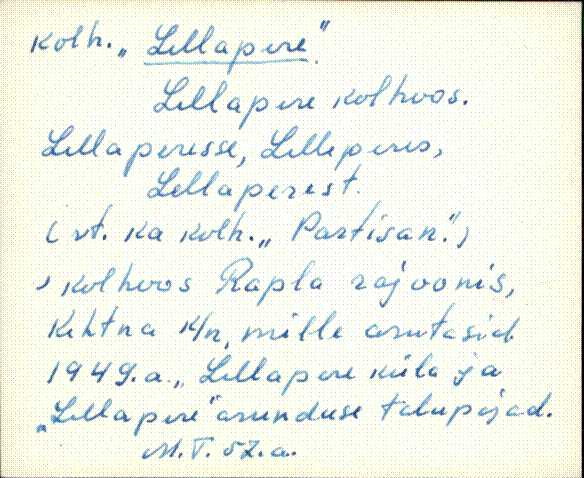 kolh. „Lellapere".
Lellapere kolhoos.
Lellaperesse, Lelleperes,
Lellaperest.
(vt. ka kolh. „Partisan.")
, kolhoos Rapla rajoonis,
Kehtna k/n, mille asutasid
1949.a. „Lellapere küla ja
„Lellapere" asunduse talupojad.
M.T. 57.a.